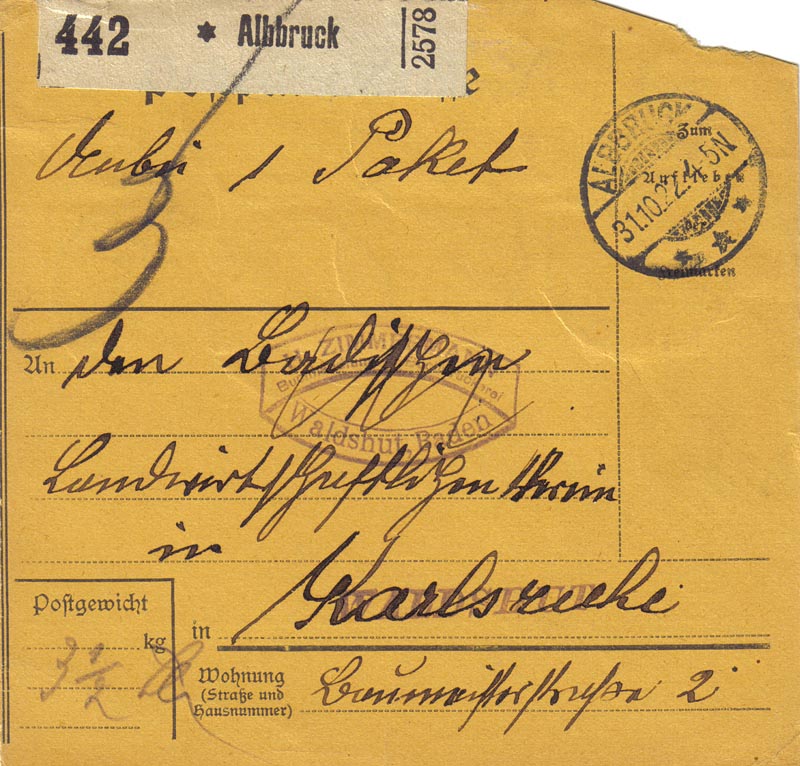 442 * Albbruck 2578
Anbei 1 Paket
Zum
Aufkleben
der
Freimarken
ALBBRUCK
31.10.22.4-5N
An den Badischen
Waldshut, Baden
Landwirtschaftlichen Verein
in
Postgewicht
kg
3 1/2
in Karlsruhe
Wohnung
(Straße und
Hausnummer)
Baumeisterstraße 2
3